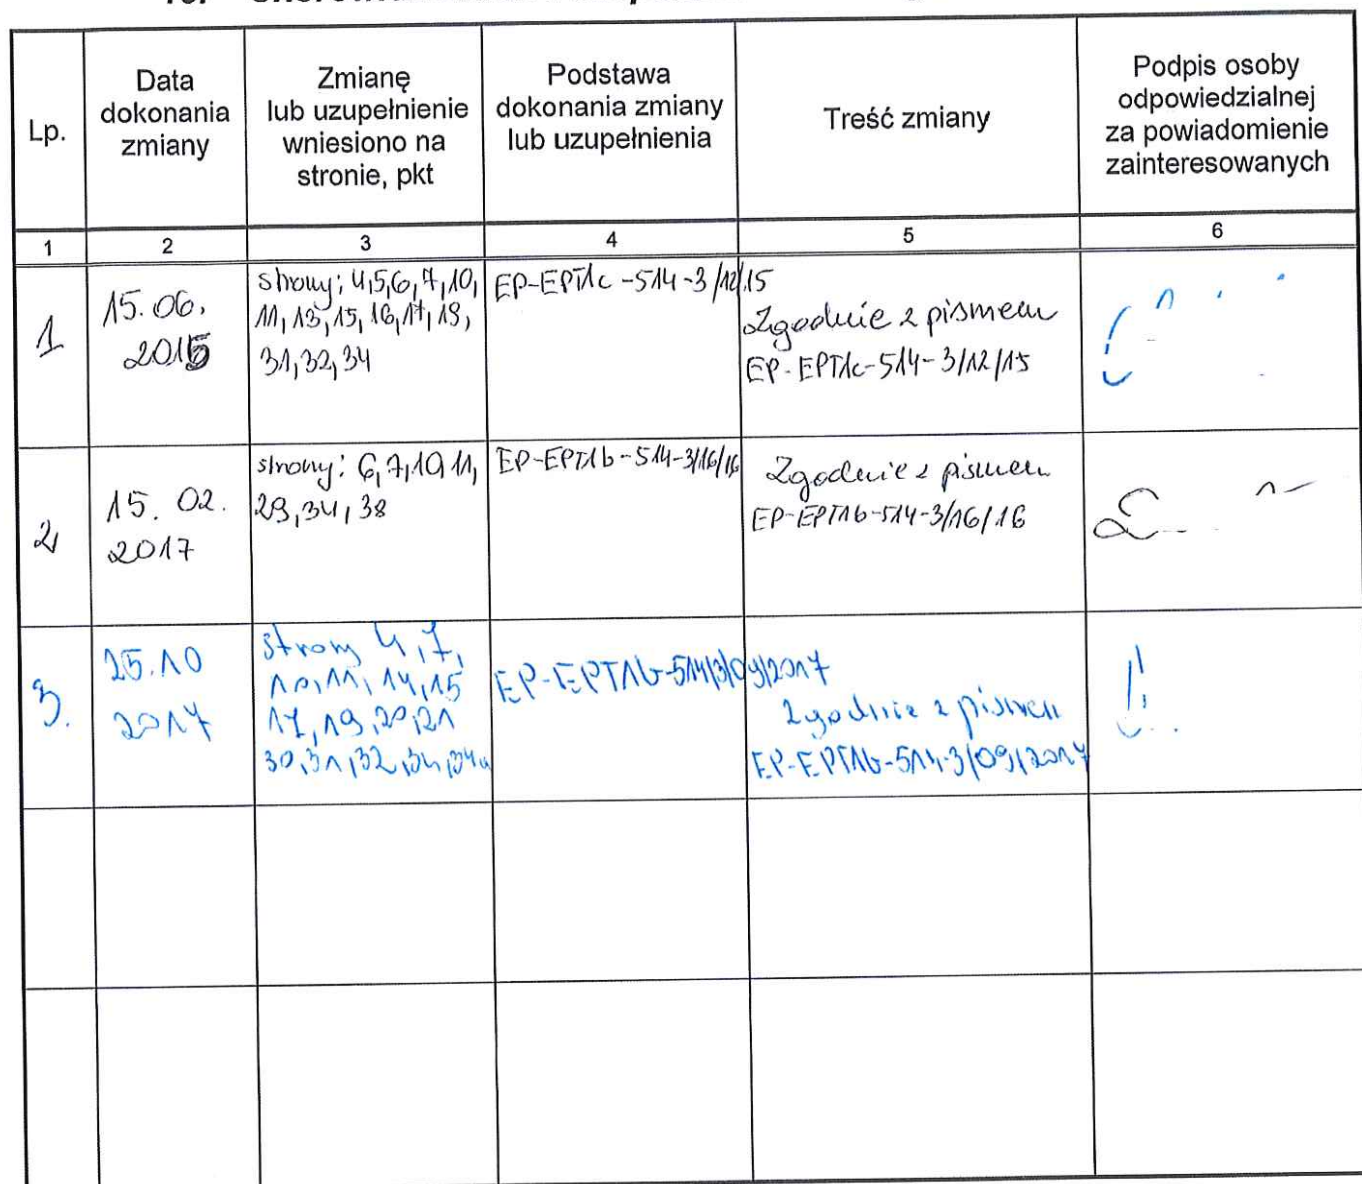 Lp.
Data
dokonania
zmiany
Zmianę
lub uzupełnienie
wniesiono na
stronie, pkt
Podstawa
dokonania zmiany
lub uzupełnienia
Treść zmiany
Podpis osoby
odpowiedzialnej
za powiadomienie
zainteresowanych
1 2 3 4 5 6
1
15.06.
2015
strony: 4,5,6,7,10,
11,13,15,16,17,19,
31,32,34
EP-EPT1c-514-3/12/15
Zgodnie z pismem
EP-EPT1c-514-3/12/15
2
15. 02.
2017
strony: 6,7,10,11,
29,34,38
EP-EPT1b-514-3/16/16
Zgodnie z pismem
EP-EPT1b-514-3/16/16
3.
25.10
2017
strony 4,7,
10,11,14,15
17,19,20,21
30,31,32,34,34a
EP-EPT1b-514/3/09/2017
Zgodnie z pismem
EP-EPT1b-514-3/09/2017